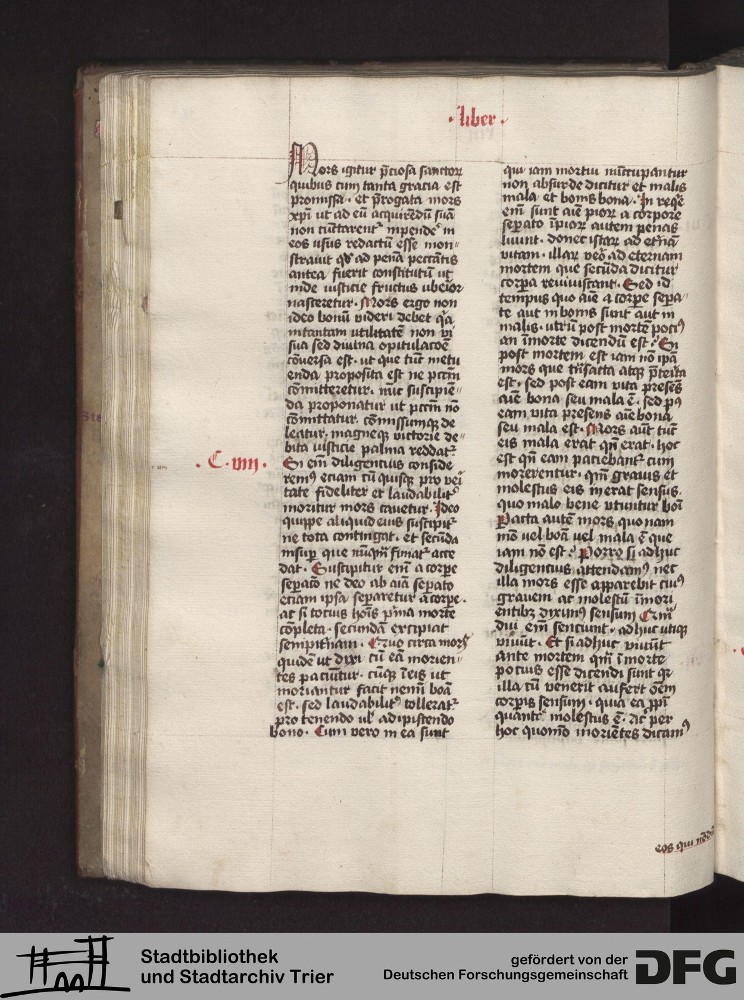 · liber ·
Mors igitur p̄ciosa sanctoꝝ
quibus cum tanta gracia est
promissa · et p̄rogata mors
xp̄i ut ad eū acquirēdū suā
non cūctarent᷑ inpende᷑ in
eos usus redactū esse mon=
stravit qd̓ ad penā peccātis
antea fuerit constitutū ut
inde iusticie fructus uberior
nasceretur · Mors ergo non
ideo bonū videri debet q̓a
in tantam utilitatē non vi
sua sed divina opitulacōē
cōversa est · ut que tūc metu
enda proposita est ne pctm̄
cōmitteretur · nūc suscipiē=
da proponatur ut pctm̄ nō
cōmittatur · cōmissumqꝫ de
leatur, magneqꝫ victorie de=
bita iusticie palma reddat᷑
· C · viiii ·
Si em̄ diligentius conside
remꝰ etiam cū quisqꝫ pro vei
tate fideliter et laudabilit᷑
moritur mors cavetur. Ideo
quippe aliquid eius suscipit᷑
ne tota contingat · et secūda
insup̄ que nūqm̄ finiat᷑ acce
dat · Suscipitur em̄ a corpe
sepacō ne deo ab aīa sepato
etiam ipsa separetur a corpe ·
at si totius hoīs p̓ma morte
cōpleta · secundā excipiat
sempit̓nam · Quo circa mors
quidē ut dixi cū eā morien=
tes paciūtur · cūqꝫ ī eis ut
moriantur facit nemī boā
est · sed laudabilit᷑ tollerat᷑
pro tenendo ul̓ adipiscendo
bono · Cum vero in ea sunt
qui iam mortui nūcupantur
non absurde dicitur et malis
mala et bonis bona · In reqe̓
em̄ sunt aīe pioꝝ a corpore
sepato īpioꝝ autem penas
luunt · donec istaꝝ ad et̓nā
vitam · illaꝝ ve᷑o ad eternam
mortem que secūda dicitur
corpa reviviscant · Sed id
tempus quo aīe a corpe sepa
te aut in bonis sunt aut in
malis · utrū post mortē pociꝰ
an ī morte dicendū est · Si
post mortem est iam nō ipā
mors que trāsacta atqꝫ p̄terita
est · sed post eam vita presēs
aīe bona seu mala ē · sed pꝰ
eam vita presens aīe bona
seu mala est · Mors aūt tūc
eis mala erat qn̄ erat · hoc
est qn̄ eam paciebant᷑ cum
morerentur · qm̄ gravis et
molestus eis inerat sensus ·
quo malo bene utuntur boī
Pacta autē mors quonam
mō vel boā vel mala ē que
iam nō est · Porro si adhuc
diligentius attendamꝰ nec
illa mors esse apparebit cuiꝰ
gravem ac molestū ī mori
entibꝫ diximꝰ sensum Qm̄
diu em̄ sentiunt · adhuc utiqꝫ
vivūt · Et si adhuc vivūt
ante mortem qm̄ ī morte
pocius esse dicendi sunt qꝛ
illa cū venerit aufert oēm
corpis sensum · quia ea pp̄i
quante molestus ē · ac per
hoc quomō moriētes dicamꝰ
eos qui nōdū
Stadtbibliothek
und Stadtarchiv Trier
gefördert von der
Deutschen Forschungsgemeinschaft
DFG